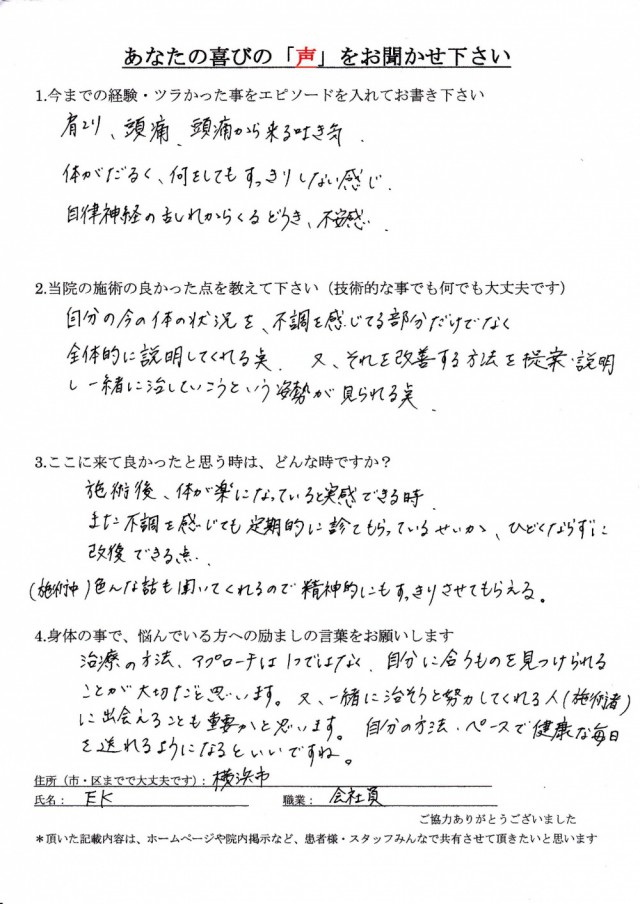 あなたの喜びの「声」をお聞かせ下さい
1.今までの経験・ツラかった事をエピソードを入れてお書き下さい
肩こり、頭痛、頭痛から来る吐き気.
体がだるく、何をしてもすっきりしない感じ.
自律神経の乱れからくるどうき、不安感.
2.当院の施術の良かった点を教えて下さい（技術的な事でも何でも大丈夫です）
自分の今の体の状況を、不調を感じてる部分だけでなく
全体的に説明してくれる点. 又、それを改善する方法を提案・説明
し一緒に治していこうという姿勢が見られる点.
3.ここに来て良かったと思う時は、どんな時ですか？
施術後、体が楽になっていると実感できる時.
また不調を感じても定期的に診てもらっているせいか、ひどくならずに
改復できる点.
(施術中)色んな話も聞いてくれるので精神的にもすっきりさせてもらえる。
4.身体の事で、悩んでいる方への励ましの言葉をお願いします
治療の方法、アプローチは1つではなく、自分に合うものを見つけられる
ことが大切だと思います。又、一緒に治そうと努力してくれる人(施術者)
に出会えることも重要かと思います。自分の方法・ペースで健康な毎日
を送れるようになるといいですね。
住所（市・区までで大丈夫です）：横浜市
氏名： EK 職業： 会社員
ご協力ありがとうございました
＊頂いた記載内容は、ホームページや院内掲示など、患者様・スタッフみんなで共有させて頂きたいと思います